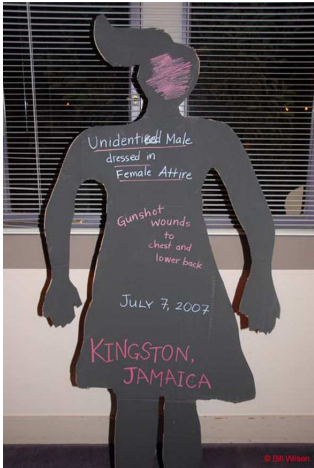 Unidentified Male
dressed in
Female Attire
Gunshot
wounds
to
chest and
lower back
JULY 7, 2007
KINGSTON,
JAMAICA
© Bill Wilson